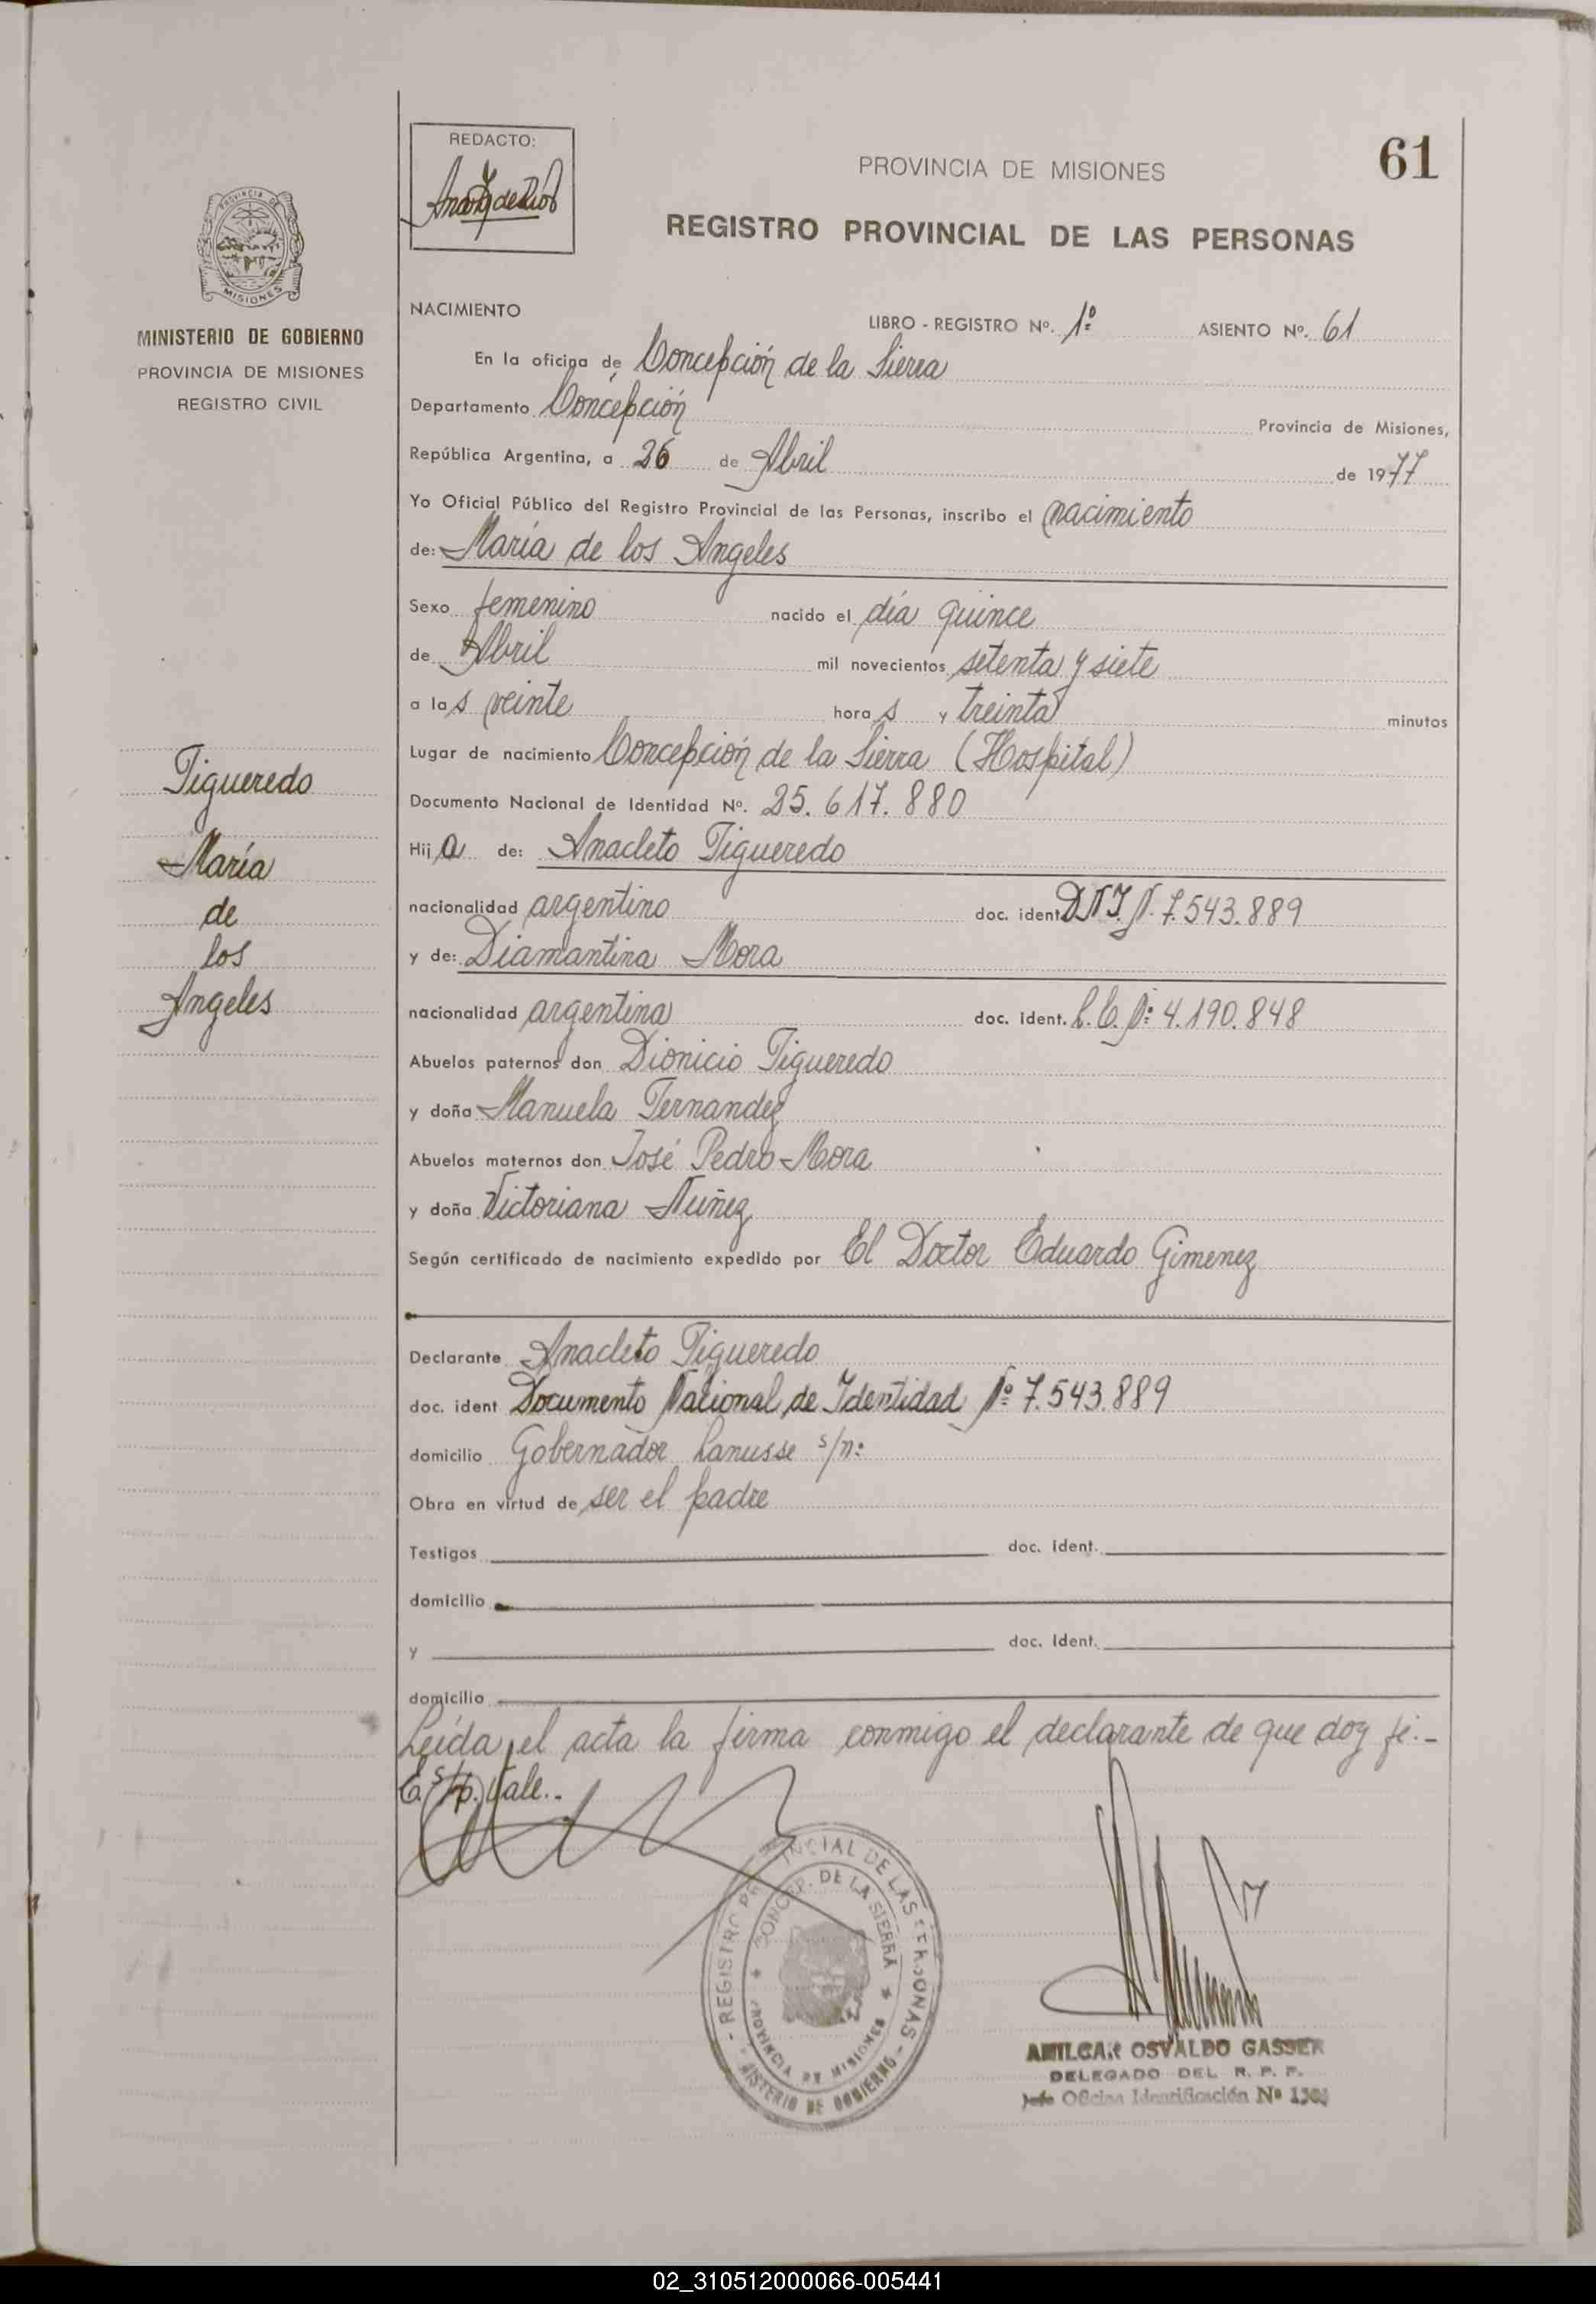 61
REDACTO:
PROVINCIA DE MISIONES
REGISTRO PROVINCIAL DE LAS PERSONAS
PROVINCIA DE
MISIONES
MINISTERIO DE GOBIERNO
PROVINCIA DE MISIONES
REGISTRO CIVIL
Figueredo
María
de
los
Angeles
NACIMIENTO
LIBRO - REGISTRO Nº. 1º ASIENTO Nº. 61
En la oficina de Concepción de la Sierra
Departamento Concepción Provincia de Misiones,
República Argentina, a 26 de Abril de 1977
Yo Oficial Público del Registro Provincial de las Personas, inscribo el nacimiento
de: María de los Angeles
Sexo femenino nacido el día quince
de Abril mil novecientos setenta y siete
a las veinte horas y treinta minutos
Lugar de nacimiento Concepción de la Sierra (Hospital)
Documento Nacional de Identidad Nº. 25.617.880
Hija de: Anacleto Figueredo
nacionalidad argentino doc. ident. DNI. N. 7.543.889
y de: Diamantina Mora
nacionalidad argentina doc. ident. L.C. Nº 4.190.848
Abuelos paternos don Dionicio Figueredo
y doña Manuela Fernandez
Abuelos maternos don José Pedro Mora
y doña Victoriana Nuñez
Según certificado de nacimiento expedido por El Doctor Eduardo Gimenez
Declarante Anacleto Figueredo
doc. ident Documento Nacional de Identidad Nº 7.543.889
domicilio Gobernador Lanusse s/n:
Obra en virtud de ser el padre
Testigos doc. ident.
domicilio
y doc. ident.
domicilio
Leída el acta la firma conmigo el declarante de que doy fé.-
E. s/p. Vale.-
REGISTRO PROVINCIAL DE LAS PERSONAS
CONCEP. DE LA SIERRA
PROVINCIA DE MISIONES
MINISTERIO DE GOBIERNO
AMILCAR OSVALDO GASSER
DELEGADO DEL R. P. P.
Jefe Oficina Identificación Nº
02_310512000066-005441